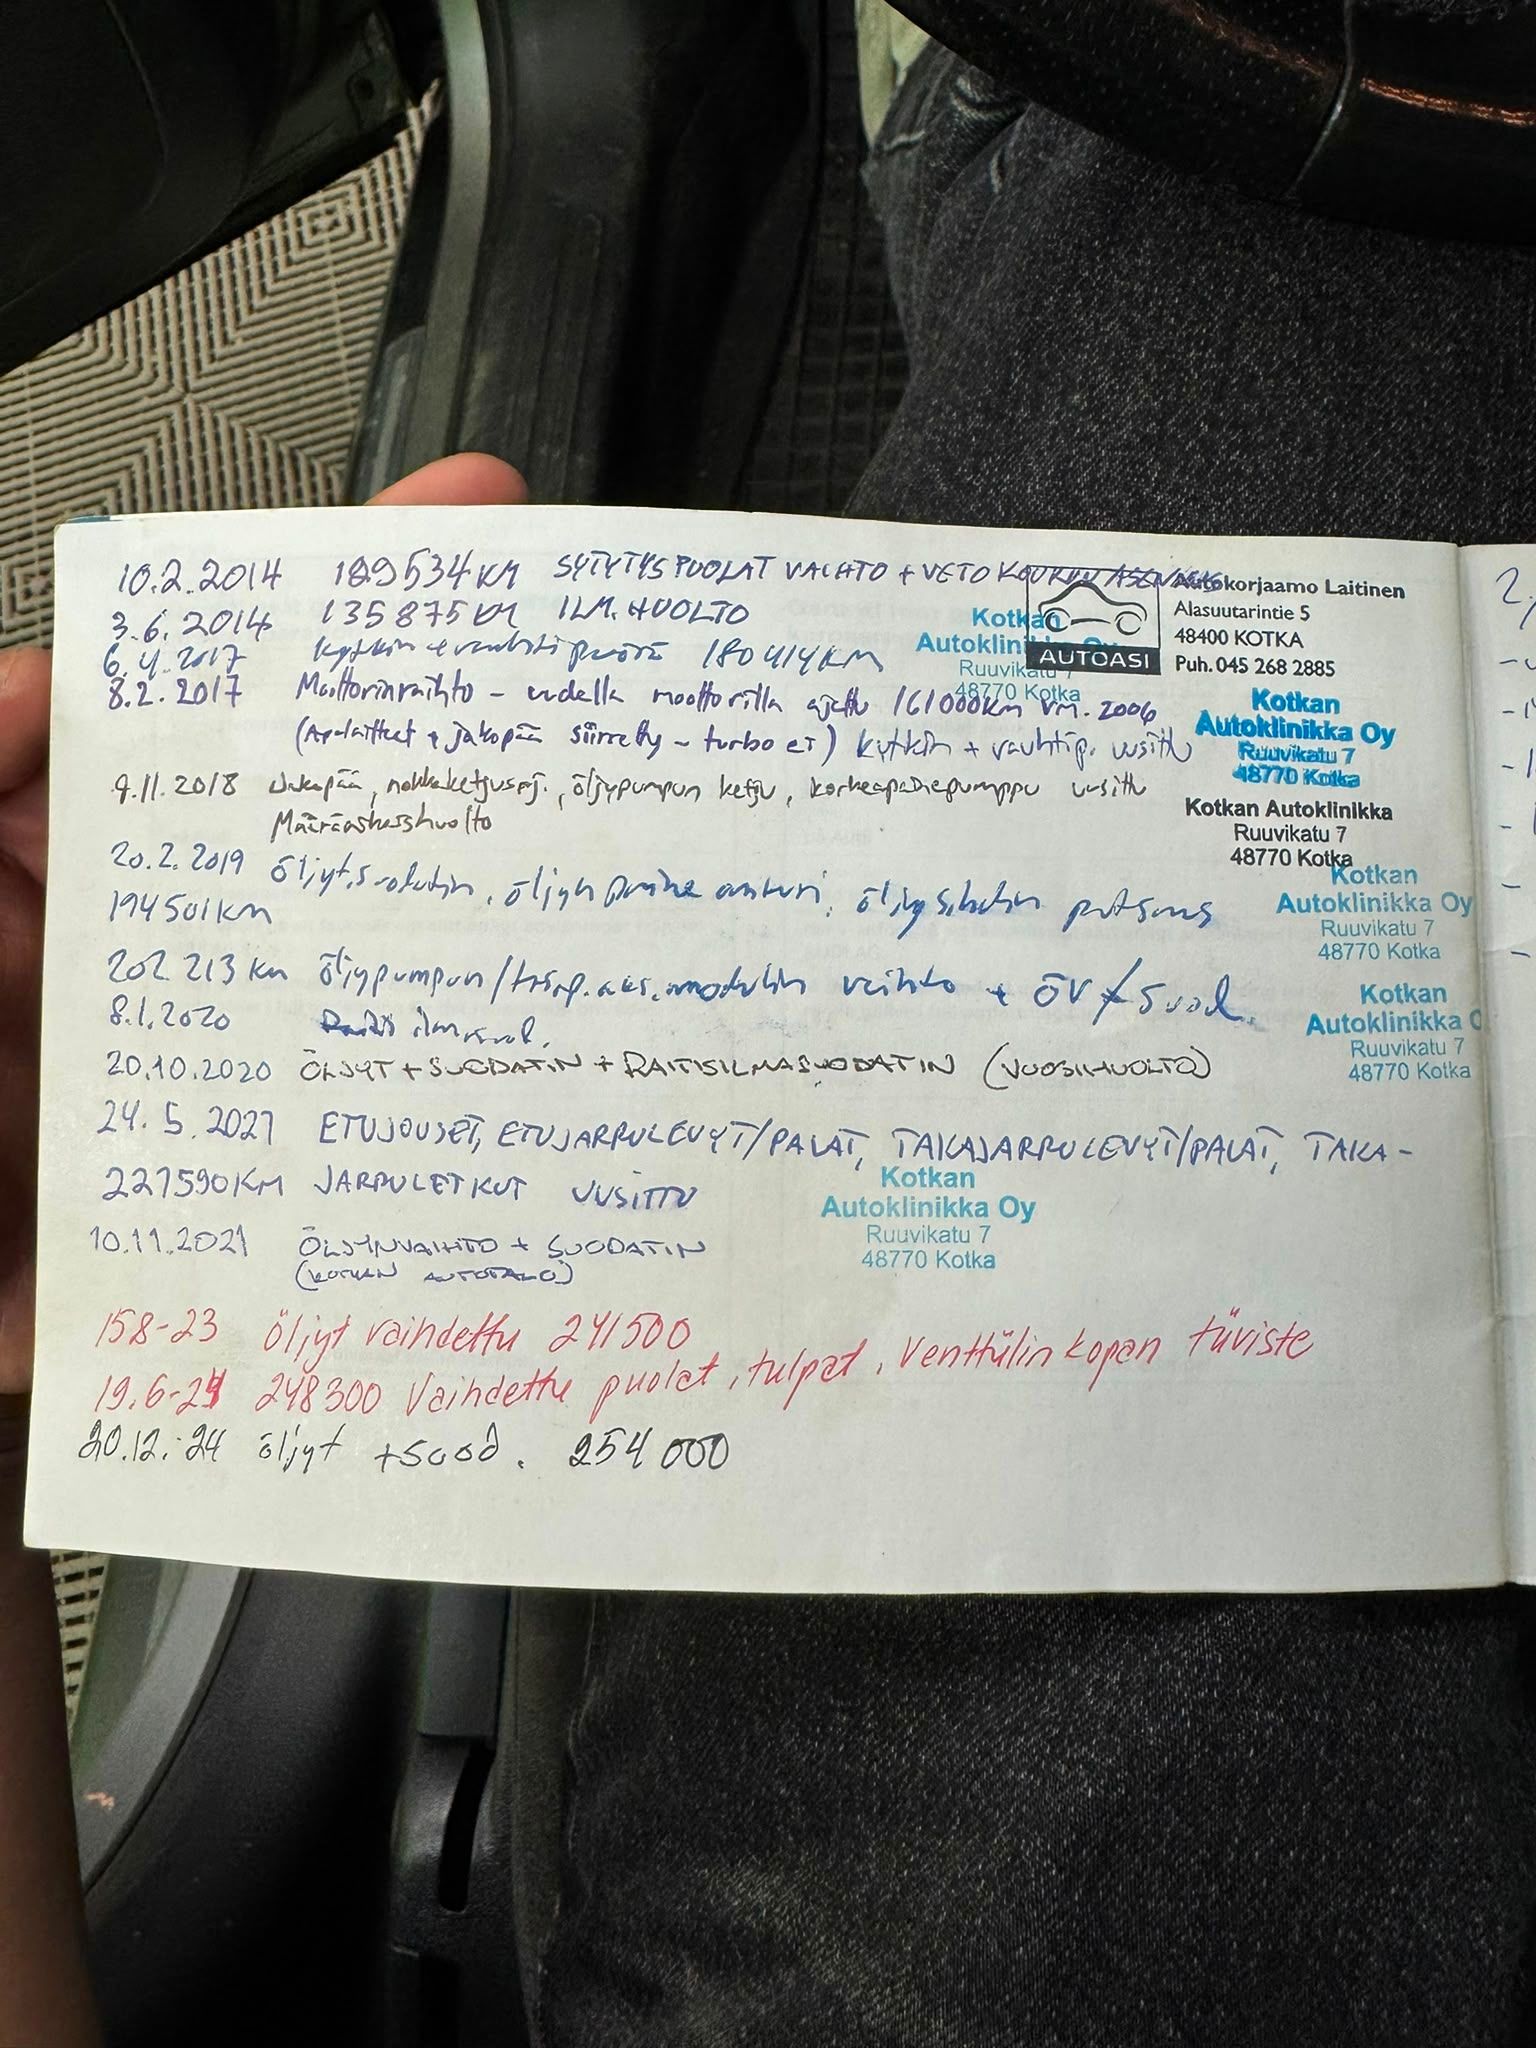 10.2.2014 129534 KM SYTYTYSPUOLAT VAIHTO + VETOKOUKUN ASENNUS
3.6.2014 135875 KM ILM. HUOLTO
6.4.2017 kytkin + vauhtipyörä 180414 KM
8.2.2017 Moottorinvaihto - uudella moottorilla ajettu 161000KM vm. 2006
(Apulaitteet + jakopää siirretty - turbo ei) kytkin + vauhtip. uusittu
9.11.2018 Jakopää, nokkaketjusrj., öljypumpun ketju, korkeapainepumppu uusittu
Määräaikaishuolto
20.2.2019 Öljyt, suodatin, öljyn paine anturi, öljysihdin putsaus
194501KM
202 213 KM öljypumpun/ vaihto + ÖV + suod.
8.1.2020 Raitis ilmasuod.
20.10.2020 ÖLJYT + SUODATIN + RAITISILMASUODATIN (VUOSIHUOLTO)
24.5.2021 ETUJOUSET, ETUJARRULEVYT/PALAT, TAKAJARRULEVYT/PALAT, TAKA-
227590KM JARRULETKUT UUSITTU
10.11.2021 ÖLJYNVAIHTO + SUODATIN
(KOTKAN AUTOTALO)
15.8-23 Öljyt vaihdettu 241500
19.6-24 248300 Vaihdettu puolat, tulpat, Venttiilin kopan tiiviste
20.12.-24 öljyt + suod. 254 000
AUTOASI
Autokorjaamo Laitinen
Alasuutarintie 5
48400 KOTKA
Puh. 045 268 2885
Kotkan
Autoklinikka Oy
Ruuvikatu 7
48770 Kotka
Kotkan
Autoklinikka Oy
Ruuvikatu 7
48770 Kotka
Kotkan Autoklinikka
Ruuvikatu 7
48770 Kotka
Kotkan
Autoklinikka Oy
Ruuvikatu 7
48770 Kotka
Kotkan
Autoklinikka O
Ruuvikatu 7
48770 Kotka
Kotkan
Autoklinikka Oy
Ruuvikatu 7
48770 Kotka